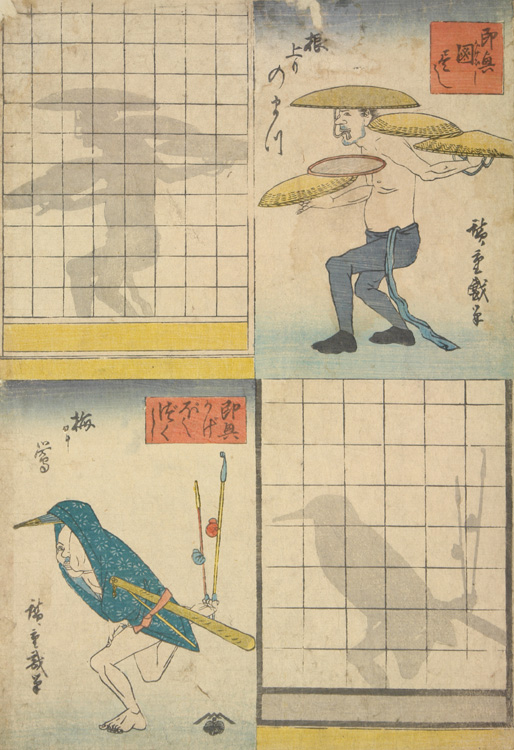 即興
根上りのまつ
廣重戯筆
即興
かげぼし
づくし
梅に
鶯
廣重戯筆